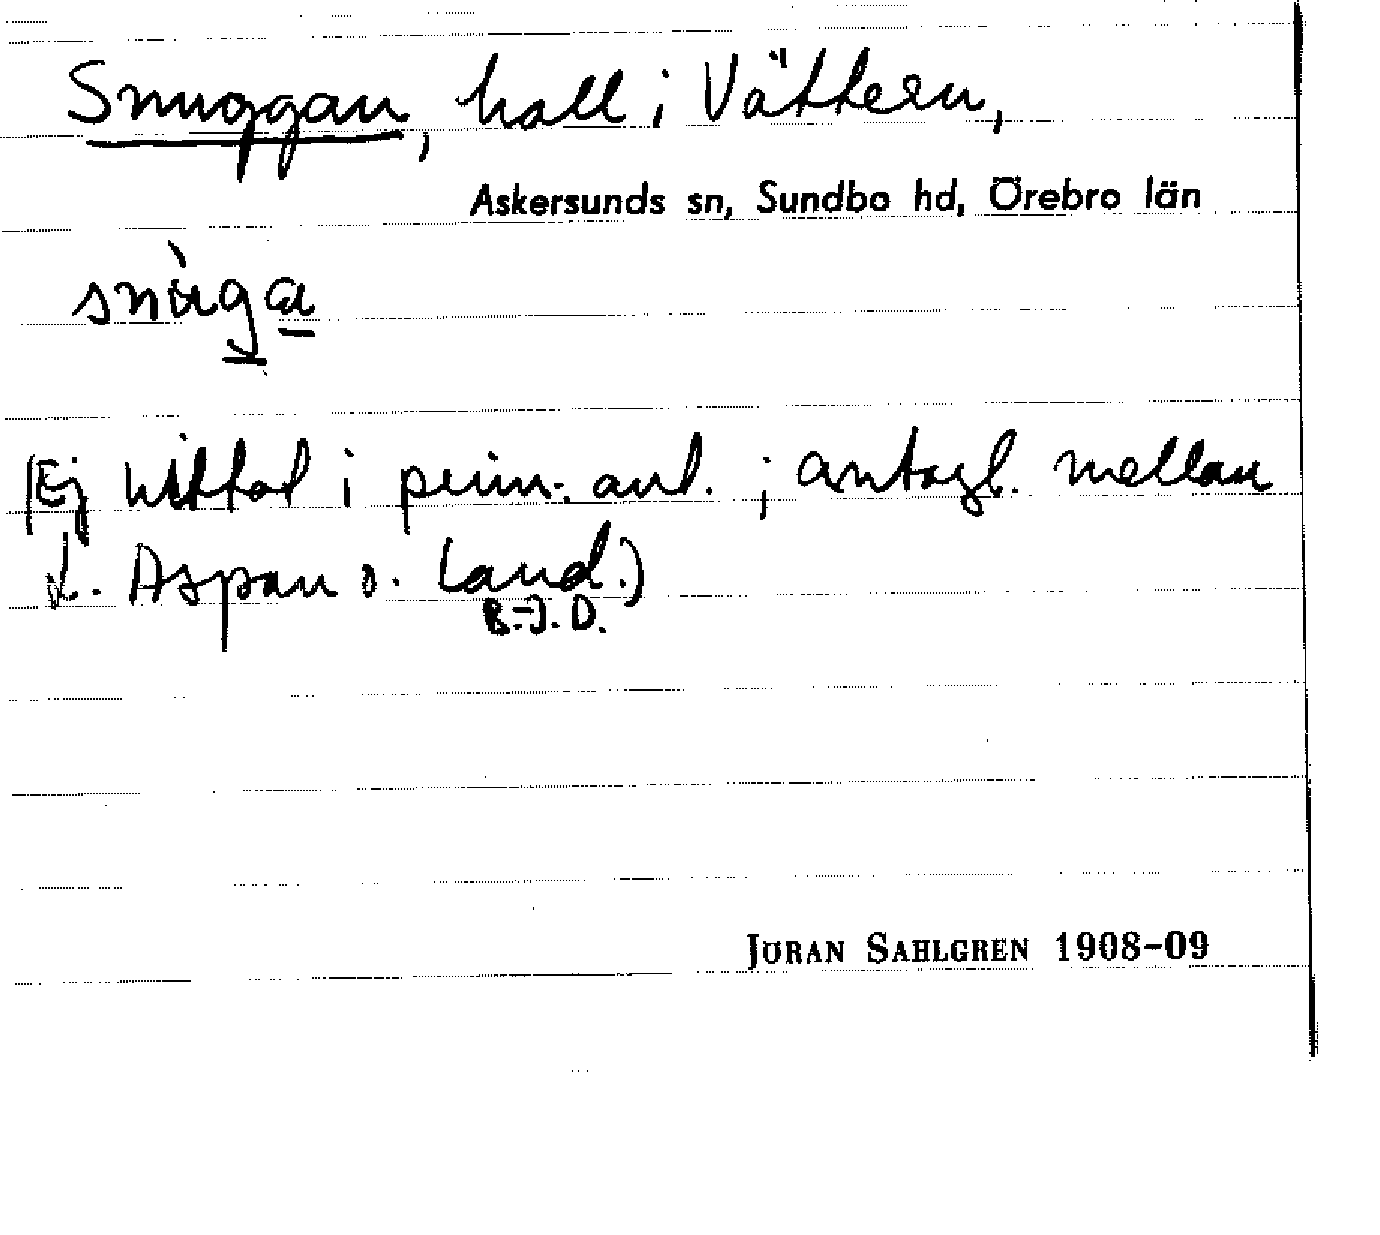 Snuggan, hall i Vättern,
Askersunds sn, Sundbo hd, Örebro län
snùga
(Ej hittat i prim. ant. ; antagl. mellan
L. Aspan o. land.)
B.-J. D.
JÖRAN SAHLGREN 1908-09